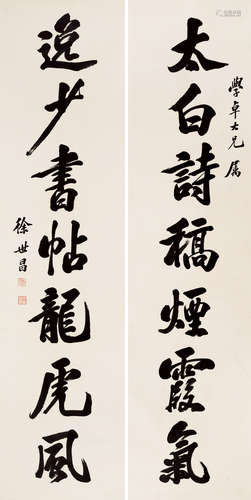 學卓大兄属
太白詩稿煙霞氣
逸少書帖龍虎風
徐世昌